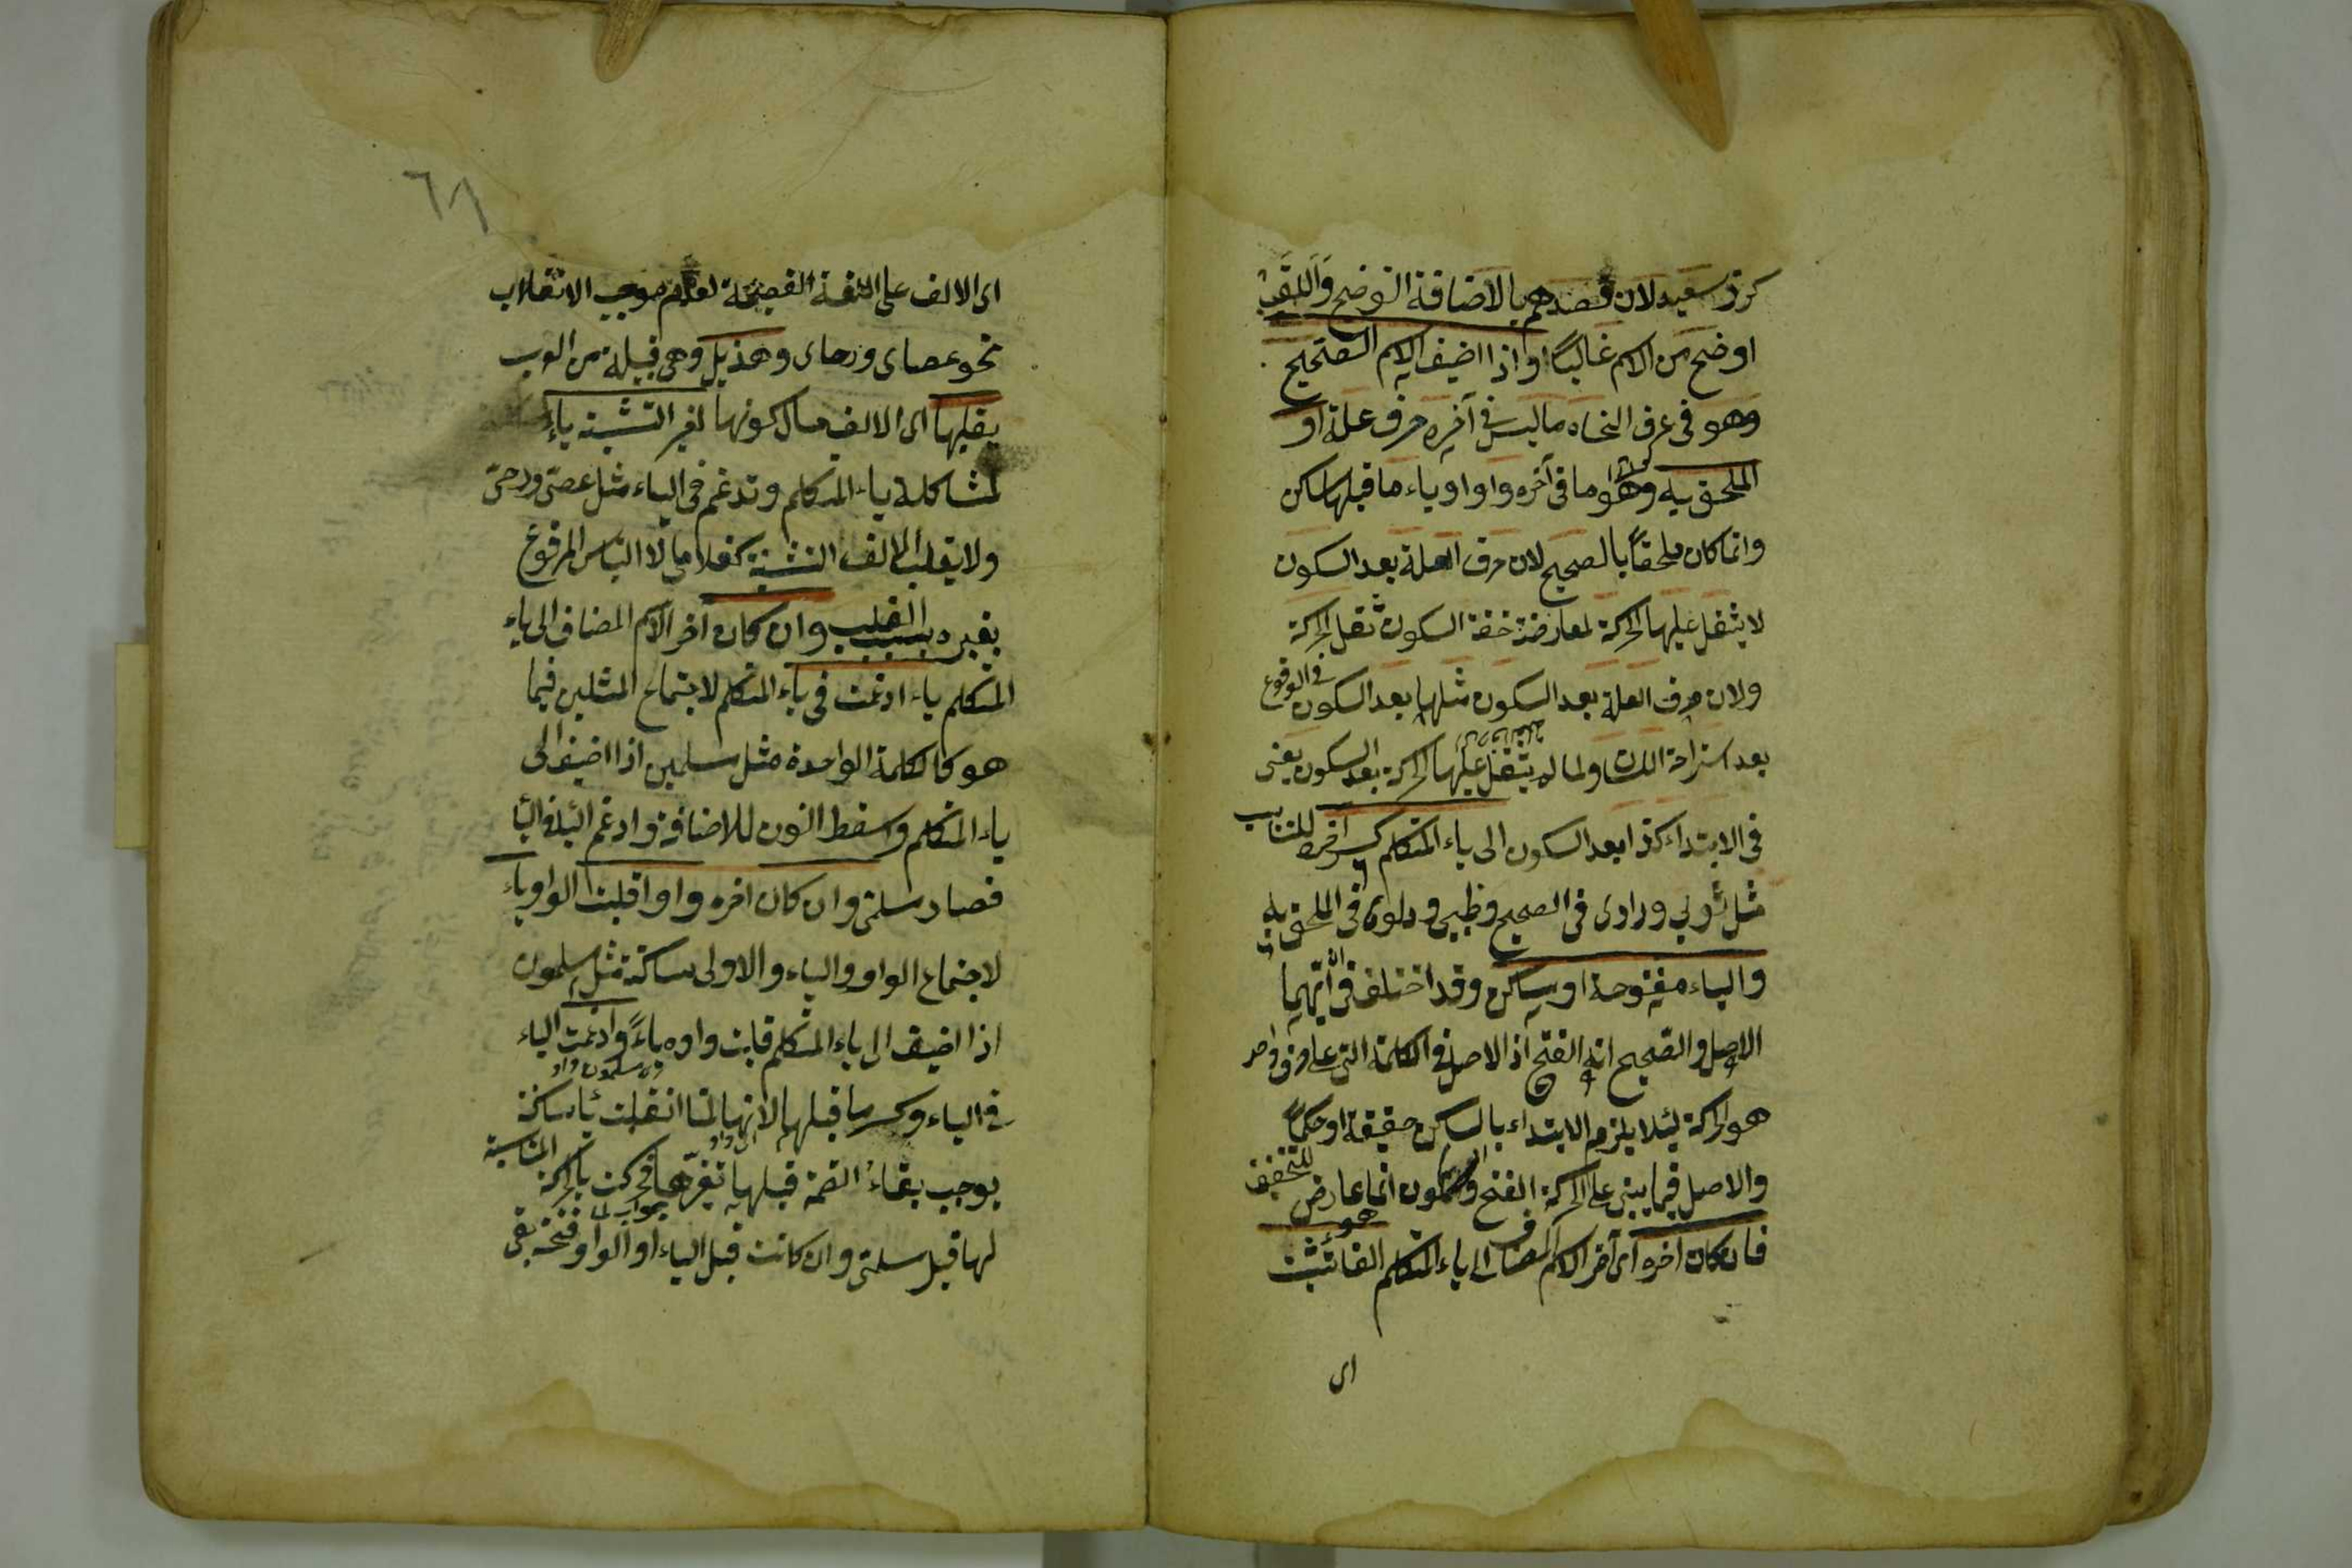 كرز سعيد لان قصدهم بالاضافة التوضيح واللقب
اوضح من الاسم غالبًا واذا اضيف الاسم الصحيح
وهو فى عرف النحاه ما ليس فى آخره حرف علة او
الملحق به وهو ما فى آخره واو او ياء ما قبلها ساكن
وانما كان ملحقاً بالصحيح لان حرف العلة بعد السكون
لا يثقل عليها الحركة لمعارضة خفة السكون ثقل الحركة
ولان حرف العلة بعد السكون مثلها بعد السكون فى الوقوع
بعد استراحة اللسان ولما لم يثقل عليها الحركة بعد السكون يعنى
فى الابتداء كذا بعد السكون الى ياء المتكلم كسر آخره للتناسب
مثل ثوبى ودارى فى الصحيح وظبيى ودلوى فى الملحق به
والياء مفتوحة او ساكن وقد اختلف فى ان ايهما
الاصل والصحيح انه الفتح اذ الاصل فى الكلمة التى على حرف واحد
هو الحركة لئلا يلزم الابتداء بالساكن حقيقة او حكماً
والاصل فيما يبنى على الحركة الفتح والسكون انما عارض للتخفيف
فان كان آخره اى آخر الاسم المضاف الى ياء المتكلم الفا تثبت
اى
٦٨
اى الالف على اللغة الفصيحة لعدم موجب الانقلاب
نحو عصاى ورحاى وهذيل وهى قبيلة من العرب
يقلبها اى الالف حال كونها لغير التثنية ياءً
لمشاكلة ياء المتكلم وتدغم فى الياء مثل عصىّ ورحىّ
ولا يقلب الف التثنية كغلاماى لالتباس المرفوع
بغيره بسبب القلب وان كان آخر الاسم المضاف الى ياء
المتكلم ياء ادغمت فى ياء المتكلم لاجتماع المثلين فيما
هو كالكلمة الواحدة مثل مسلمين اذا اضيف الى
ياء المتكلم واسقط النون للاضافة وادغم الياء فى الياء
فصار مسلمىّ وان كان آخره واوا قلبت الواو ياء
لاجتماع الواو والياء والاولى ساكنة مثل مسلمون
اذا اضيف الى ياء المتكلم قلبت واوه ياءً وادغمت الياء
فى الياء وكسر ما قبلها لانها لما انقلبت ياء ساكنة
يوجب بقاء الضمة قبلها تغيرها فحركت بالحركة المناسبة
لها قيل مسلمىّ وان كانت قبل الياء او الواو فتحة بقى